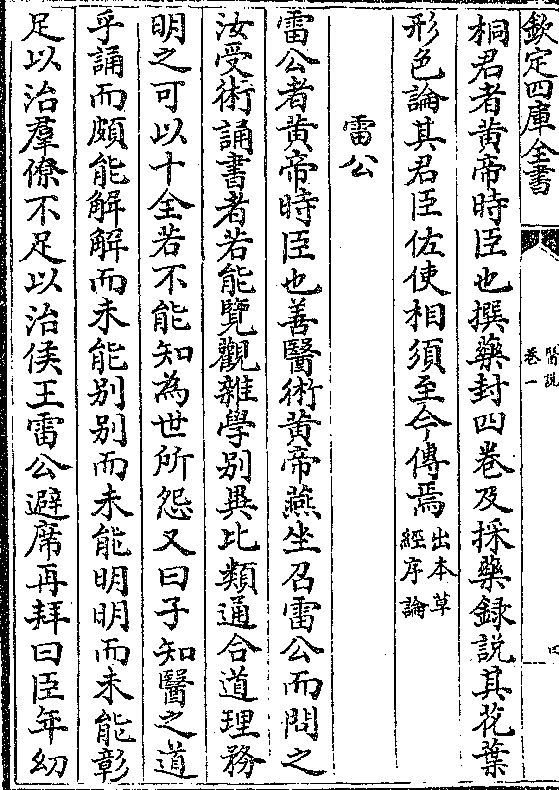 欽定四庫全書
醫說
卷一
桐君者黄帝時臣也撰藥封四卷及採藥録説其花葉
形色論其君臣佐使相須至今傳焉出本草
經序論
雷公
雷公者黄帝時臣也善醫術黄帝燕坐召雷公而問之
汝受術誦書者若能覽觀雜學别異比類通合道理務
明之可以十全若不能知為世所怨又曰子知醫之道
乎誦而頗能解解而未能别别而未能明明而未能彰
足以治羣僚不足以治侯王雷公避席再拜曰臣年幼